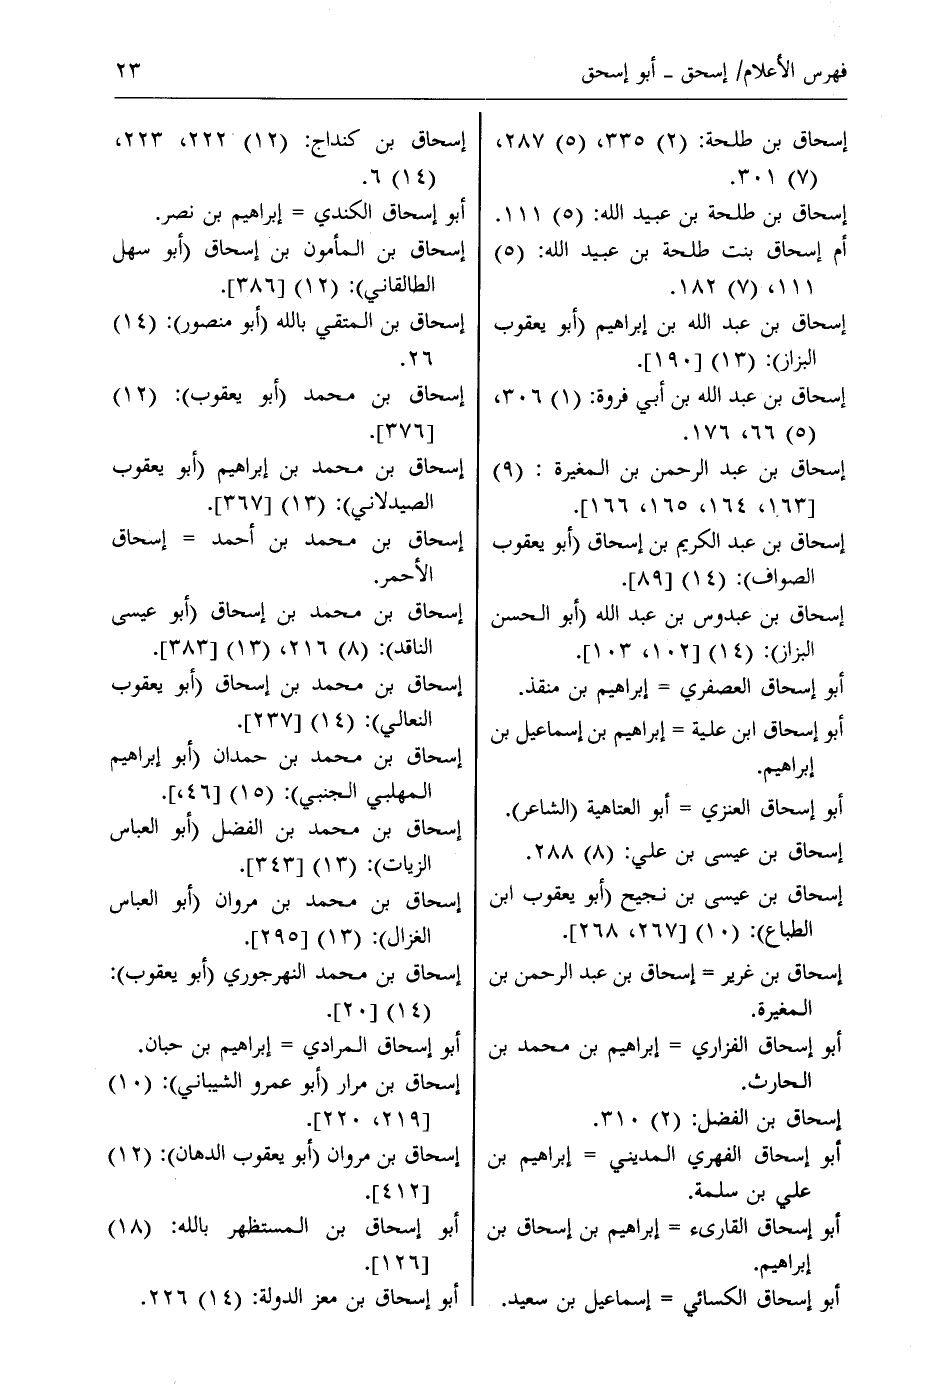 فهرس الأعلام/ إسحق - أبو إسحق
٢٣
إسحاق بن طلحة: (٢) ٣٣٥، (٥) ٢٨٧،
(٧) ٣٠١.
إسحاق بن طلحة بن عبيد الله: (٥) ١١١.
أم إسحاق بنت طلحة بن عبيد الله: (٥)
١١١، (٧) ١٨٢.
إسحاق بن عبد الله بن إبراهيم (أبو يعقوب
البزاز): (١٣) [١٩٠].
إسحاق بن عبد الله بن أبي فروة: (١) ٣٠٦،
(٥) ٦٦، ١٧٦.
إسحاق بن عبد الرحمن بن المغيرة : (٩)
[١٦٣، ١٦٤، ١٦٥، ١٦٦].
إسحاق بن عبد الكريم بن إسحاق (أبو يعقوب
الصواف): (١٤) [٨٩].
إسحاق بن عبدوس بن عبد الله (أبو الحسن
البزاز): (١٤) [١٠٢، ١٠٣].
أبو إسحاق العصفري = إبراهيم بن منقذ.
أبو إسحاق ابن علية = إبراهيم بن إسماعيل بن
إبراهيم.
أبو إسحاق العنزي = أبو العتاهية (الشاعر).
إسحاق بن عيسى بن علي: (٨) ٢٨٨.
إسحاق بن عيسى بن نجيح (أبو يعقوب ابن
الطباع): (١٠) [٢٦٧، ٢٦٨].
إسحاق بن غرير = إسحاق بن عبد الرحمن بن
المغيرة.
أبو إسحاق الفزاري = إبراهيم بن محمد بن
الحارث.
إسحاق بن الفضل: (٢) ٣١٠.
أبو إسحاق الفهري المديني = إبراهيم بن
علي بن سلمة.
أبو إسحاق القارىء = إبراهيم بن إسحاق بن
إبراهيم.
أبو إسحاق الكسائي = إسماعيل بن سعيد.
إسحاق بن كنداج: (١٢) ٢٢٢، ٢٢٣،
(١٤) ٦.
أبو إسحاق الكندي = إبراهيم بن نصر.
إسحاق بن المأمون بن إسحاق (أبو سهل
الطالقاني): (١٢) [٣٨٦].
إسحاق بن المتقي بالله (أبو منصور): (١٤)
٢٦.
إسحاق بن محمد (أبو يعقوب): (١٢)
[٣٧٦].
إسحاق بن محمد بن إبراهيم (أبو يعقوب
الصيدلاني): (١٣) [٣٦٧].
إسحاق بن محمد بن أحمد = إسحاق
الأحمر.
إسحاق بن محمد بن إسحاق (أبو عيسى
الناقد): (٨) ٢١٦، (١٣) [٣٨٣].
إسحاق بن محمد بن إسحاق (أبو يعقوب
النعالي): (١٤) [٢٣٧].
إسحاق بن محمد بن حمدان (أبو إبراهيم
المهلبي الجنبي): (١٥) [٤٦،].
إسحاق بن محمد بن الفضل (أبو العباس
الزيات): (١٣) [٣٤٣].
إسحاق بن محمد بن مروان (أبو العباس
الغزال): (١٣) [٢٩٥].
إسحاق بن محمد النهرجوري (أبو يعقوب):
(١٤) [٢٠].
أبو إسحاق المرادي = إبراهيم بن حبان.
إسحاق بن مرار (أبو عمرو الشيباني): (١٠)
[٢١٩، ٢٢٠].
إسحاق بن مروان (أبو يعقوب الدهان): (١٢)
[٤١٢].
أبو إسحاق بن المستظهر بالله: (١٨)
[١٢٦].
أبو إسحاق بن معز الدولة: (١٤) ٢٢٦.